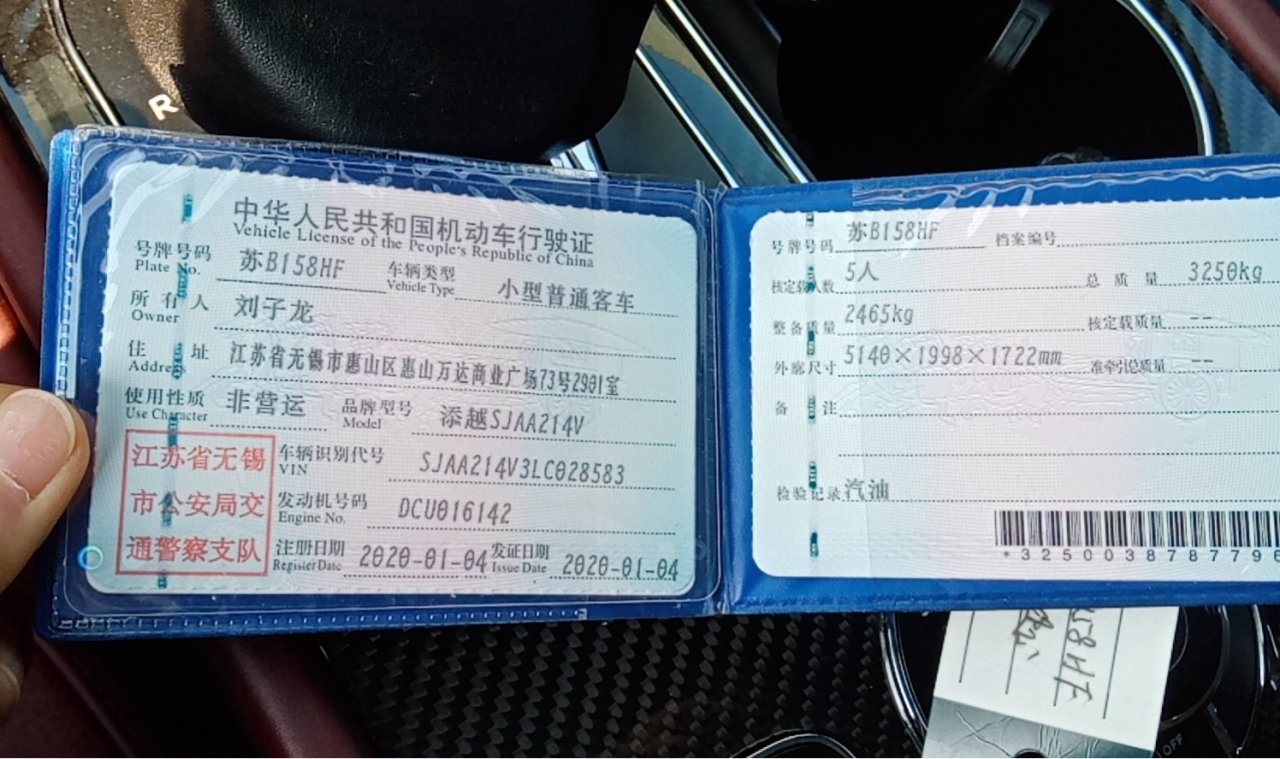 R
中华人民共和国机动车行驶证
Vehicle License of the People's Republic of China
号牌号码 苏B158HF 车辆类型 小型普通客车
Plate No. Vehicle Type
所有人 刘子龙
Owner
住址 江苏省无锡市惠山区惠山万达商业广场73号2901室
Address
使用性质 非营运 品牌型号 添越SJAA214V
Use Character Model
江苏省无锡
市公安局交
通警察支队
车辆识别代号 SJAA214V3LC028583
VIN
发动机号码 DCU016142
Engine No.
注册日期 2020-01-04 发证日期 2020-01-04
Register Date Issue Date
号牌号码 苏B158HF 档案编号
核定载人数 5人 总质量 3250kg
整备质量 2465kg 核定载质量 --
外廓尺寸 5140×1998×1722mm 准牵引总质量 --
备注
检验记录 汽油
*3250038787796
58HF
OFF